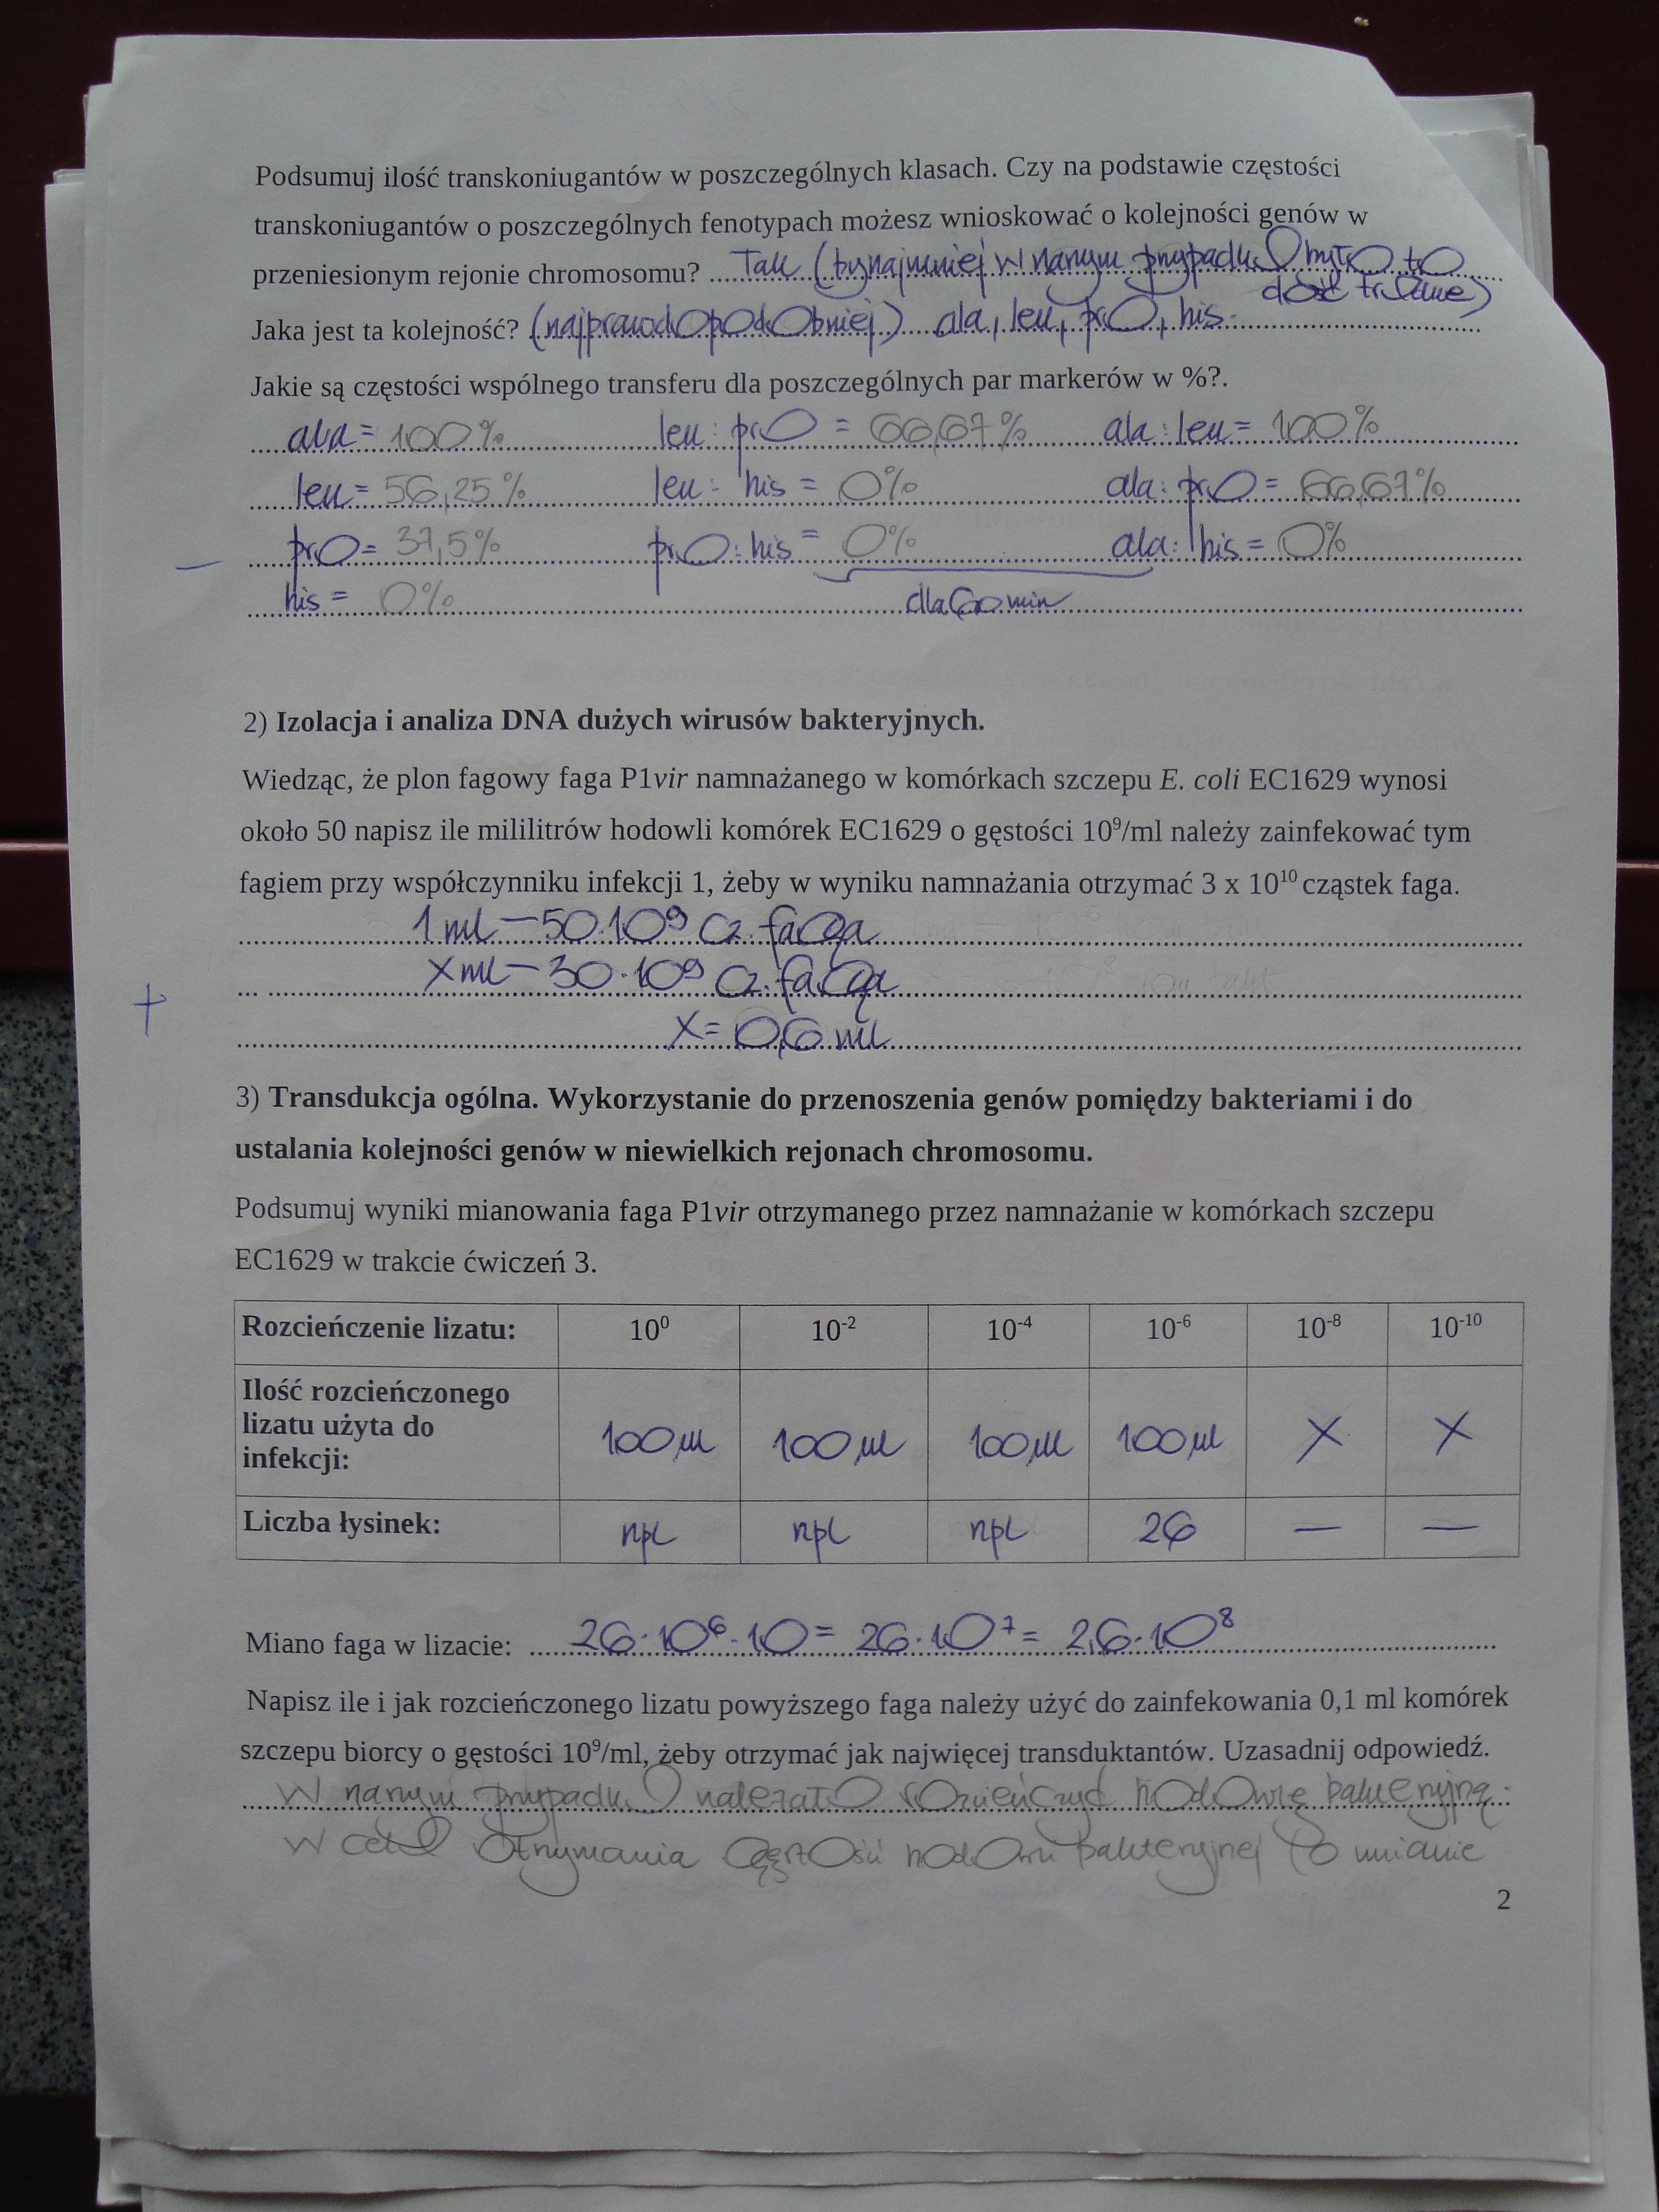 Podsumuj ilość transkoniugantów w poszczególnych klasach. Czy na podstawie częstości
transkoniugantów o poszczególnych fenotypach możesz wnioskować o kolejności genów w
przeniesionym rejonie chromosomu? Tak (bynajmniej w naszym przypadku było to
dość trudne)
Jaka jest ta kolejność? (najprawdopodobniej) ala, leu, pro, his.
Jakie są częstości wspólnego transferu dla poszczególnych par markerów w %?.
ala = 100% leu : pro = 66,67% ala : leu = 100%
leu = 56,25% leu : his = 0% ala : pro = 66,67%
pro = 37,5% pro : his = 0% ala : his = 0%
–
his = 0% dla 60 min
2) Izolacja i analiza DNA dużych wirusów bakteryjnych.
Wiedząc, że plon fagowy faga P1vir namnażanego w komórkach szczepu E. coli EC1629 wynosi
około 50 napisz ile mililitrów hodowli komórek EC1629 o gęstości 10⁹/ml należy zainfekować tym
fagiem przy współczynniku infekcji 1, żeby w wyniku namnażania otrzymać 3 x 10¹⁰ cząstek faga.
1 ml – 50·10⁹ cz. faga
x ml – 30·10⁹ cz. faga
+
x = 0,6 ml
3) Transdukcja ogólna. Wykorzystanie do przenoszenia genów pomiędzy bakteriami i do
ustalania kolejności genów w niewielkich rejonach chromosomu.
Podsumuj wyniki mianowania faga P1vir otrzymanego przez namnażanie w komórkach szczepu
EC1629 w trakcie ćwiczeń 3.
Rozcieńczenie lizatu: 10⁰ 10⁻² 10⁻⁴ 10⁻⁶ 10⁻⁸ 10⁻¹⁰
Ilość rozcieńczonego
lizatu użyta do
infekcji: 100 µl 100 µl 100 µl 100 µl X X
Liczba łysinek: npl npl npl 26 — —
Miano faga w lizacie: 26·10⁶·10 = 26·10⁷ = 2,6·10⁸
Napisz ile i jak rozcieńczonego lizatu powyższego faga należy użyć do zainfekowania 0,1 ml komórek
szczepu biorcy o gęstości 10⁹/ml, żeby otrzymać jak najwięcej transduktantów. Uzasadnij odpowiedź.
W naszym przypadku należało rozcieńczyć hodowlę bakteryjną.
W celu otrzymania gęstości hodowli bakteryjnej o mianie
2